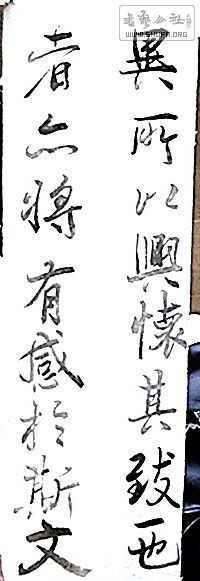 書藝公社
WWW.SHUFA.ORG
異所以興懷其致一也
者亦將有感於斯文